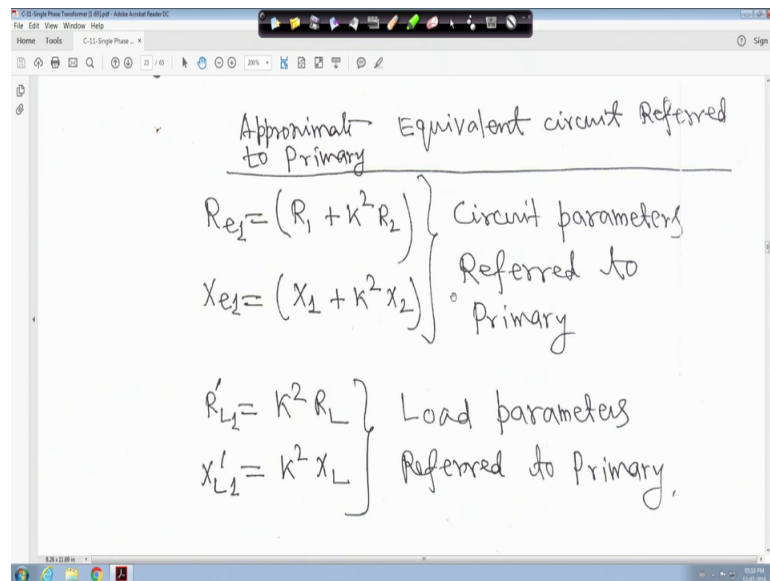 C-11-Single Phase Transformer [1-65].pdf - Adobe Acrobat Reader DC
File Edit View Window Help
Home Tools C-11-Single Phase ... × Sign
23 / 65 200%
Approximate Equivalent circuit Referred
to Primary
Re1 = (R1 + K²R2) } Circuit parameters
Xe1 = (X1 + K²X2) } Referred to
Primary
R'L1 = K² RL } Load parameters
X'L1 = K² XL } Referred to Primary.
8.26 x 11.69 in
05:16 PM